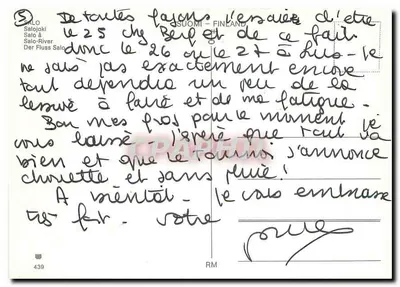 5) De toutes façons j'essaie d'être
le 25 chez et de ce fait
donc le 26 ou le 27 à je
ne sais pas exactement encore
tout dépendra un peu de la
lessive à faire et de ma fatigue.
Bon mes gros pour le moment je
vous laisse, j'espère que tout va
bien et que le s'annonce
chouette et sans pluie!
A bientôt. Je vous embrasse
très fort. votre
SALO
Salojoki
Salo å
Salo-River
Der Fluss Salo
SUOMI - FINLAND
439
RM